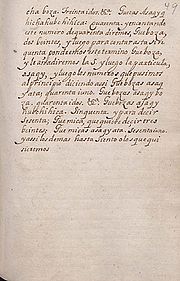 cha boza. Treinta i dos. &c. Guetas asaqy
hichihubchihica: quarenta, y en antando
este numero de quarenta diremos, Gue boza,
dos beintes, y luego para contar asta Sin
quenta pondremos este termino Gue boza,
y le añidiremos la S. y luego la particula,
asaqy, y luego los numeros que pusimos
al principio diciendo assi Gue bozas asaq
y ata; quarenta i uno. Gue bozas asaqy bo
za, quarenta i dos. &c. Gue bozas asaqy
hubchihica. Sinquenta. y para decir
sesenta; Gue mica, que quiere decir tres
beintes; Gue micas asaqy ata. Sesenta i uno.
y assi los demas hasta Siento o los que qui
sieremos